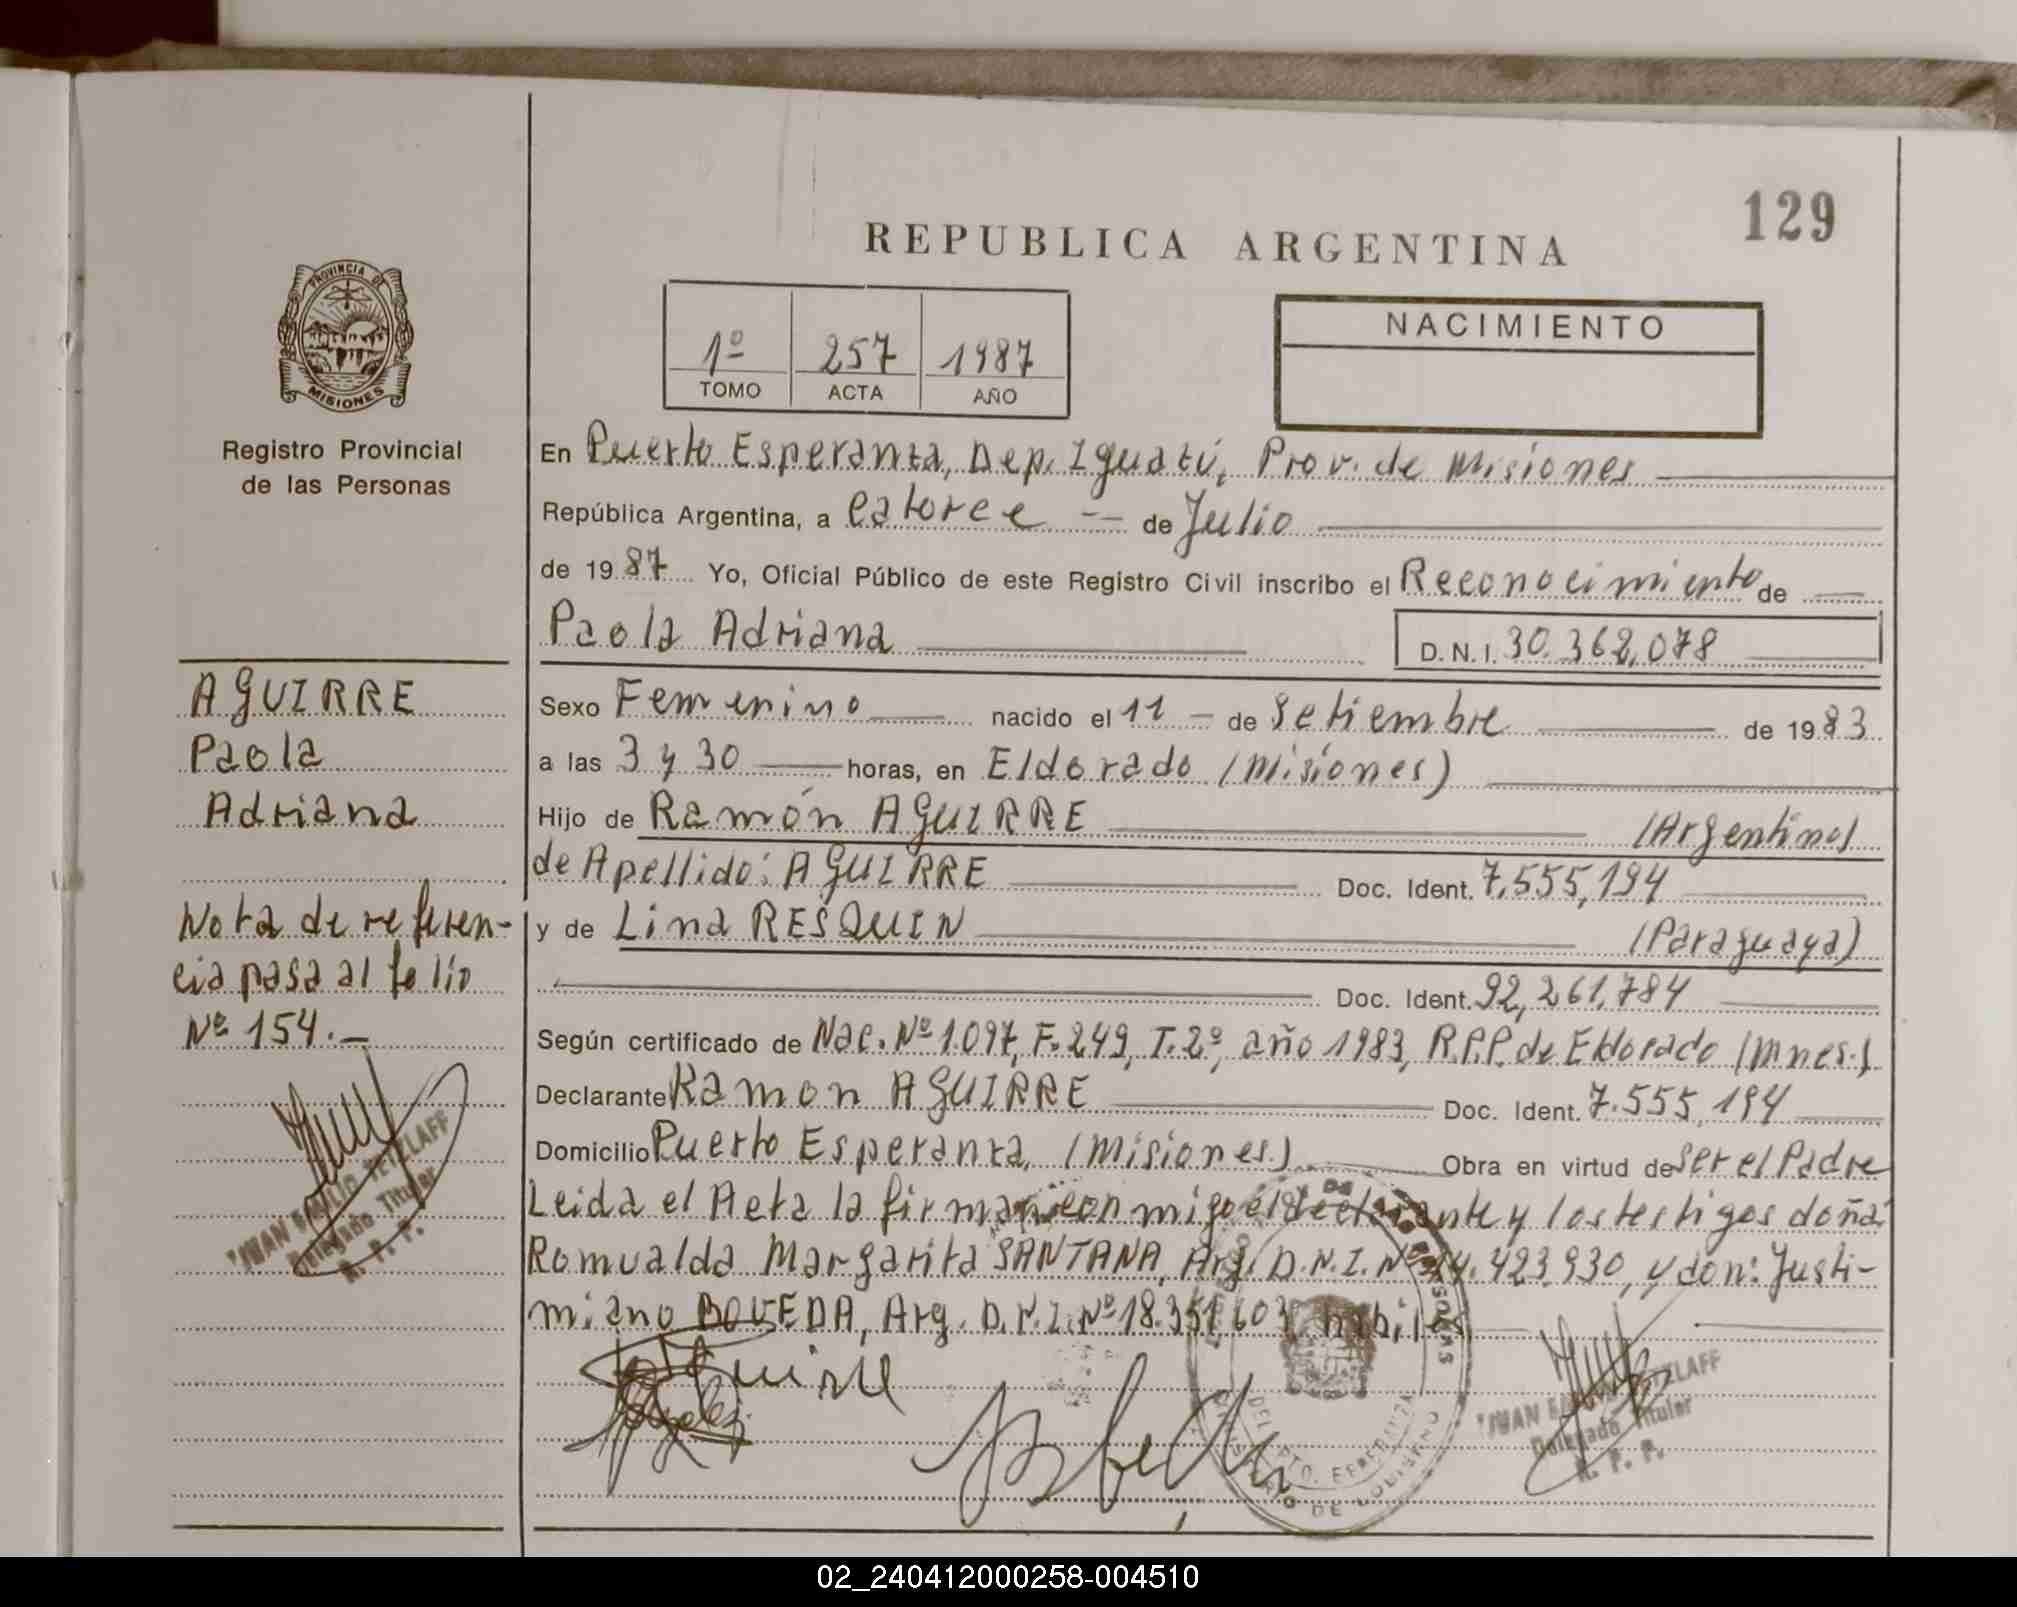 129
REPUBLICA ARGENTINA
PROVINCIA DE
MISIONES
Registro Provincial
de las Personas
1º 257 1987
TOMO ACTA AÑO
NACIMIENTO
En Puerto Esperanza, Dep. Iguazú, Prov. de Misiones
República Argentina, a Catorce -- de Julio
de 1987 Yo, Oficial Público de este Registro Civil inscribo el Reconocimiento de
Paola Adriana D.N.I. 30.362,078
Sexo Femenino nacido el 11 - de Setiembre de 1983
a las 3 y 30 horas, en Eldorado (Misiones)
Hijo de Ramón AGUIRRE (Argentino)
de Apellido: AGUIRRE Doc. Ident. 7.555,194
y de Lina RESQUIN (Paraguaya)
Doc. Ident. 92,261,784
Según certificado de Nac. Nº 1.097, F. 249, T. 2º, año 1983, R.P.P. de Eldorado (Mnes.)
Declarante Ramon AGUIRRE Doc. Ident. 7.555,194
Domicilio Puerto Esperanza, (Misiones) Obra en virtud de Ser el Padre
Leida el Acta la firman conmigo el declarante y los testigos doña:
Romualda Margarita SANTANA, Arg. D.N.I. Nº 14.423.930, y don: Justi-
miano BOVEDA, Arg. D.N.I. Nº 18.351.603, habiles
AGUIRRE
Paola
Adriana
Nota de referen-
cia pasa al folio
Nº 154.-
JUAN EMILIO TETZLAFF
Delegado Titular
R. P. P.
Aguirre
DEL PTO. ESPERANZA
MINISTERIO DE GOBIERNO
JUAN EMILIO TETZLAFF
Delegado Titular
R. P. P.
02_240412000258-004510